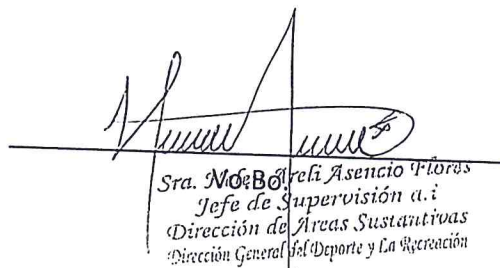 Sra. Areli Asencio Flores
Vo. Bo.
Jefe de Supervisión a.i
Dirección de Areas Sustantivas
Dirección General del Deporte y La Recreación